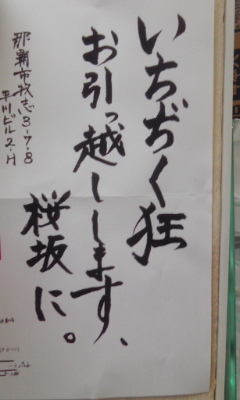 いちぢく狂
お引っ越しします、
桜坂に。
那覇市牧志3-7-8
平川ビル2-H